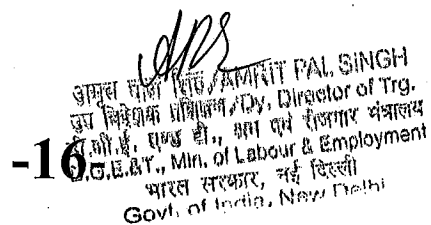 अमृत पाल सिंह/AMRIT PAL SINGH
उप निदेशक प्रशिक्षण/Dy. Director of Trg.
डी.जी.ई. एण्ड टी., श्रम एवं रोजगार मंत्रालय
-16-
D.G.E.&T., Min. of Labour & Employment
भारत सरकार, नई दिल्ली
Govt. of India, New Delhi